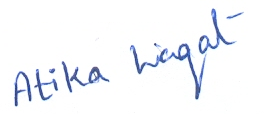 Atika Liaqat